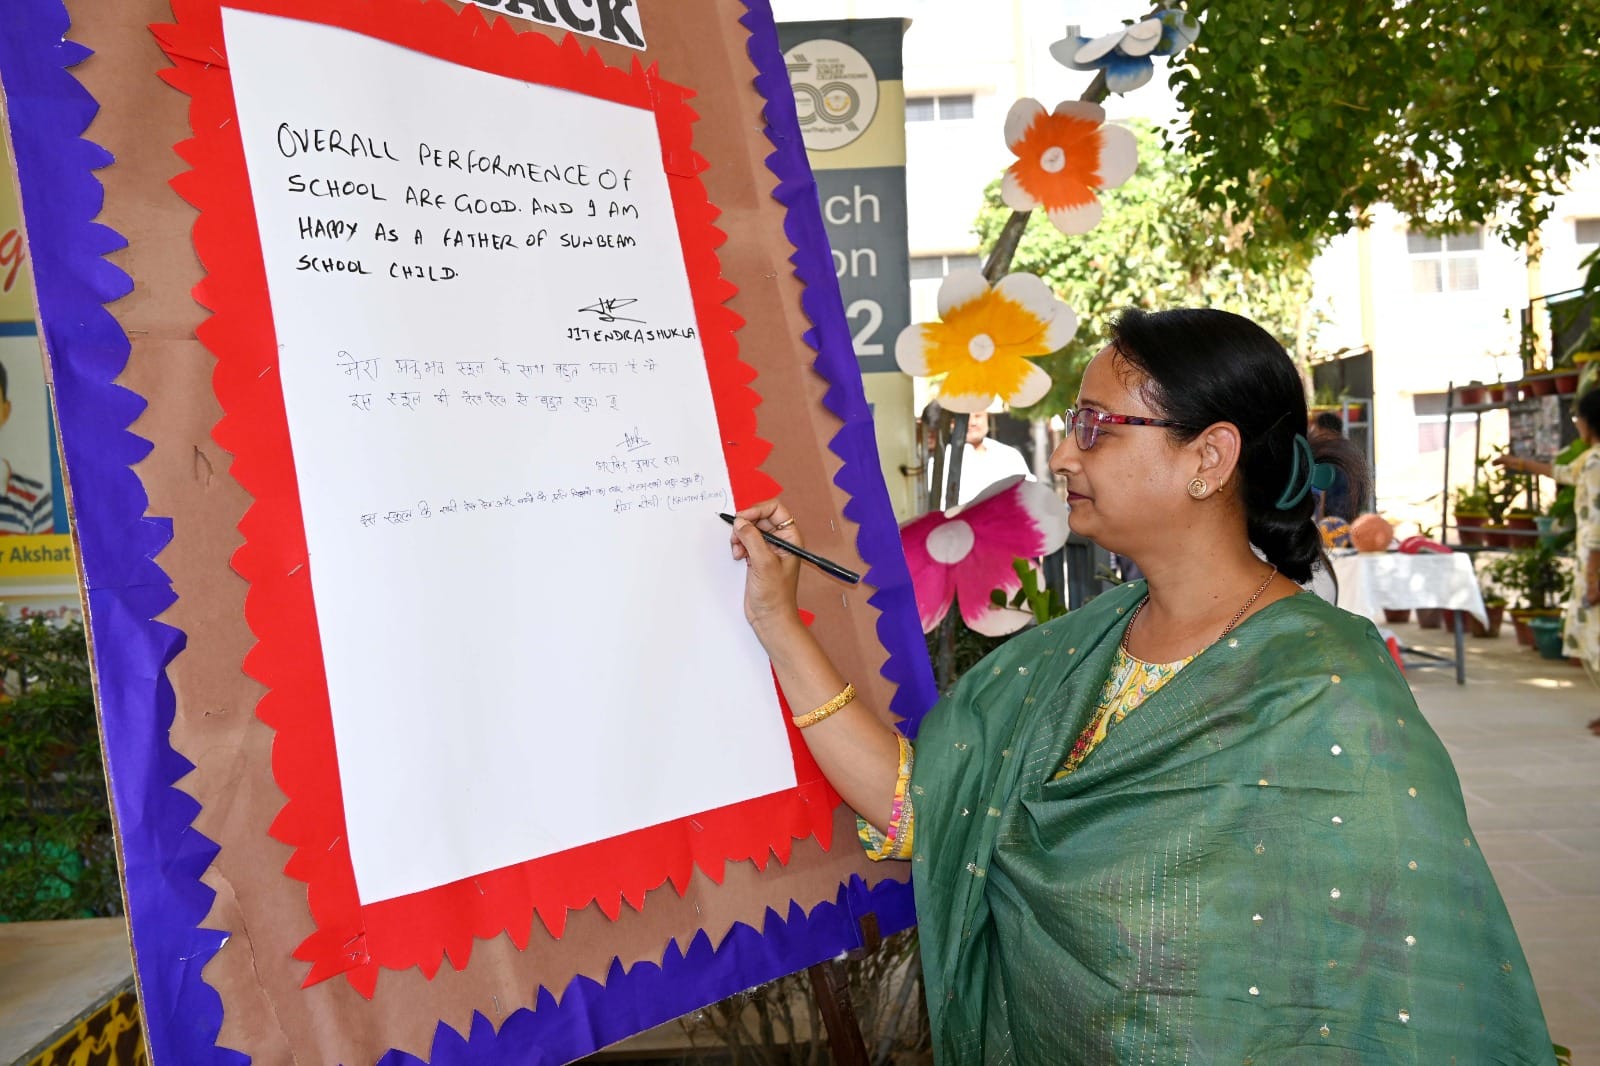 BACK
OVERALL PERFORMENCE OF
SCHOOL ARE GOOD. AND I AM
HAPPY AS A FATHER OF SUNBEAM
SCHOOL CHILD.
JITENDRA SHUKLA
मेरा अनुभव स्कूल के साथ बहुत अच्छा है मैं
इस स्कूल की देखरेख से बहुत खुश हूँ
अरविन्द कुमार राय
इस स्कूल कि सभी देख रेख और बच्चों के प्रति
GOLDEN
JUBILEE
CELEBRATIONS
ch
on
2
r Akshat